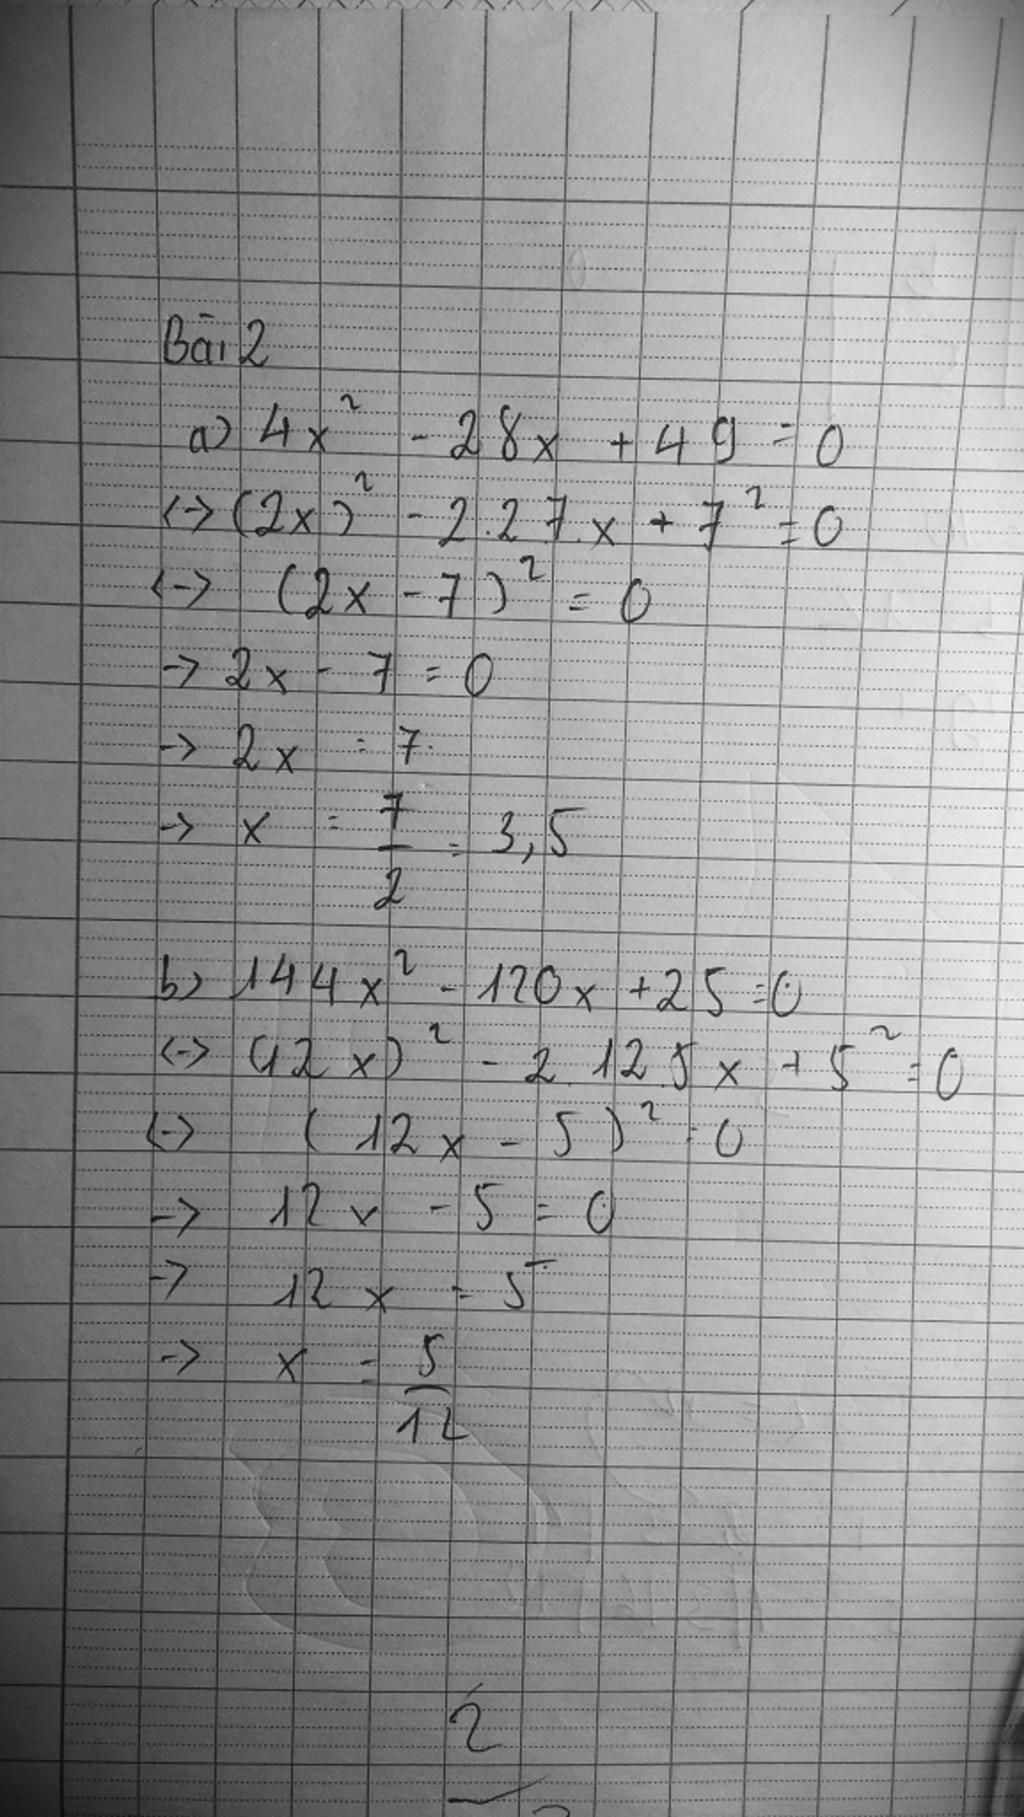 Bài 2
a) 4x² - 28x + 49 = 0
<-> (2x)² - 2.2.7.x + 7² = 0
<-> (2x - 7)² = 0
-> 2x - 7 = 0
-> 2x = 7
-> x = 7/2 = 3,5
b) 144x² - 120x + 25 = 0
<-> (12x)² - 2.12.5x + 5² = 0
<-> (12x - 5)² = 0
-> 12x - 5 = 0
-> 12x = 5
-> x = 5/12
2